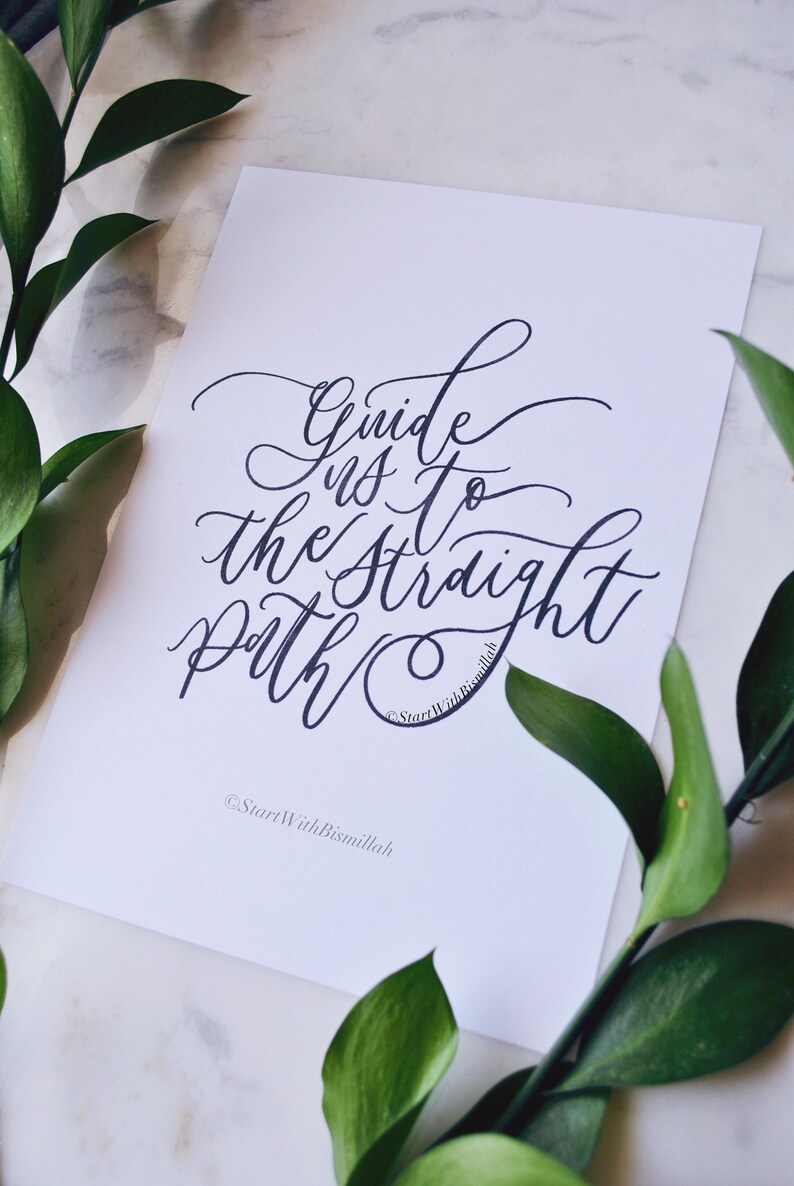 Guide
us to
the Straight
path
©StartWithBismillah
©StartWithBismillah